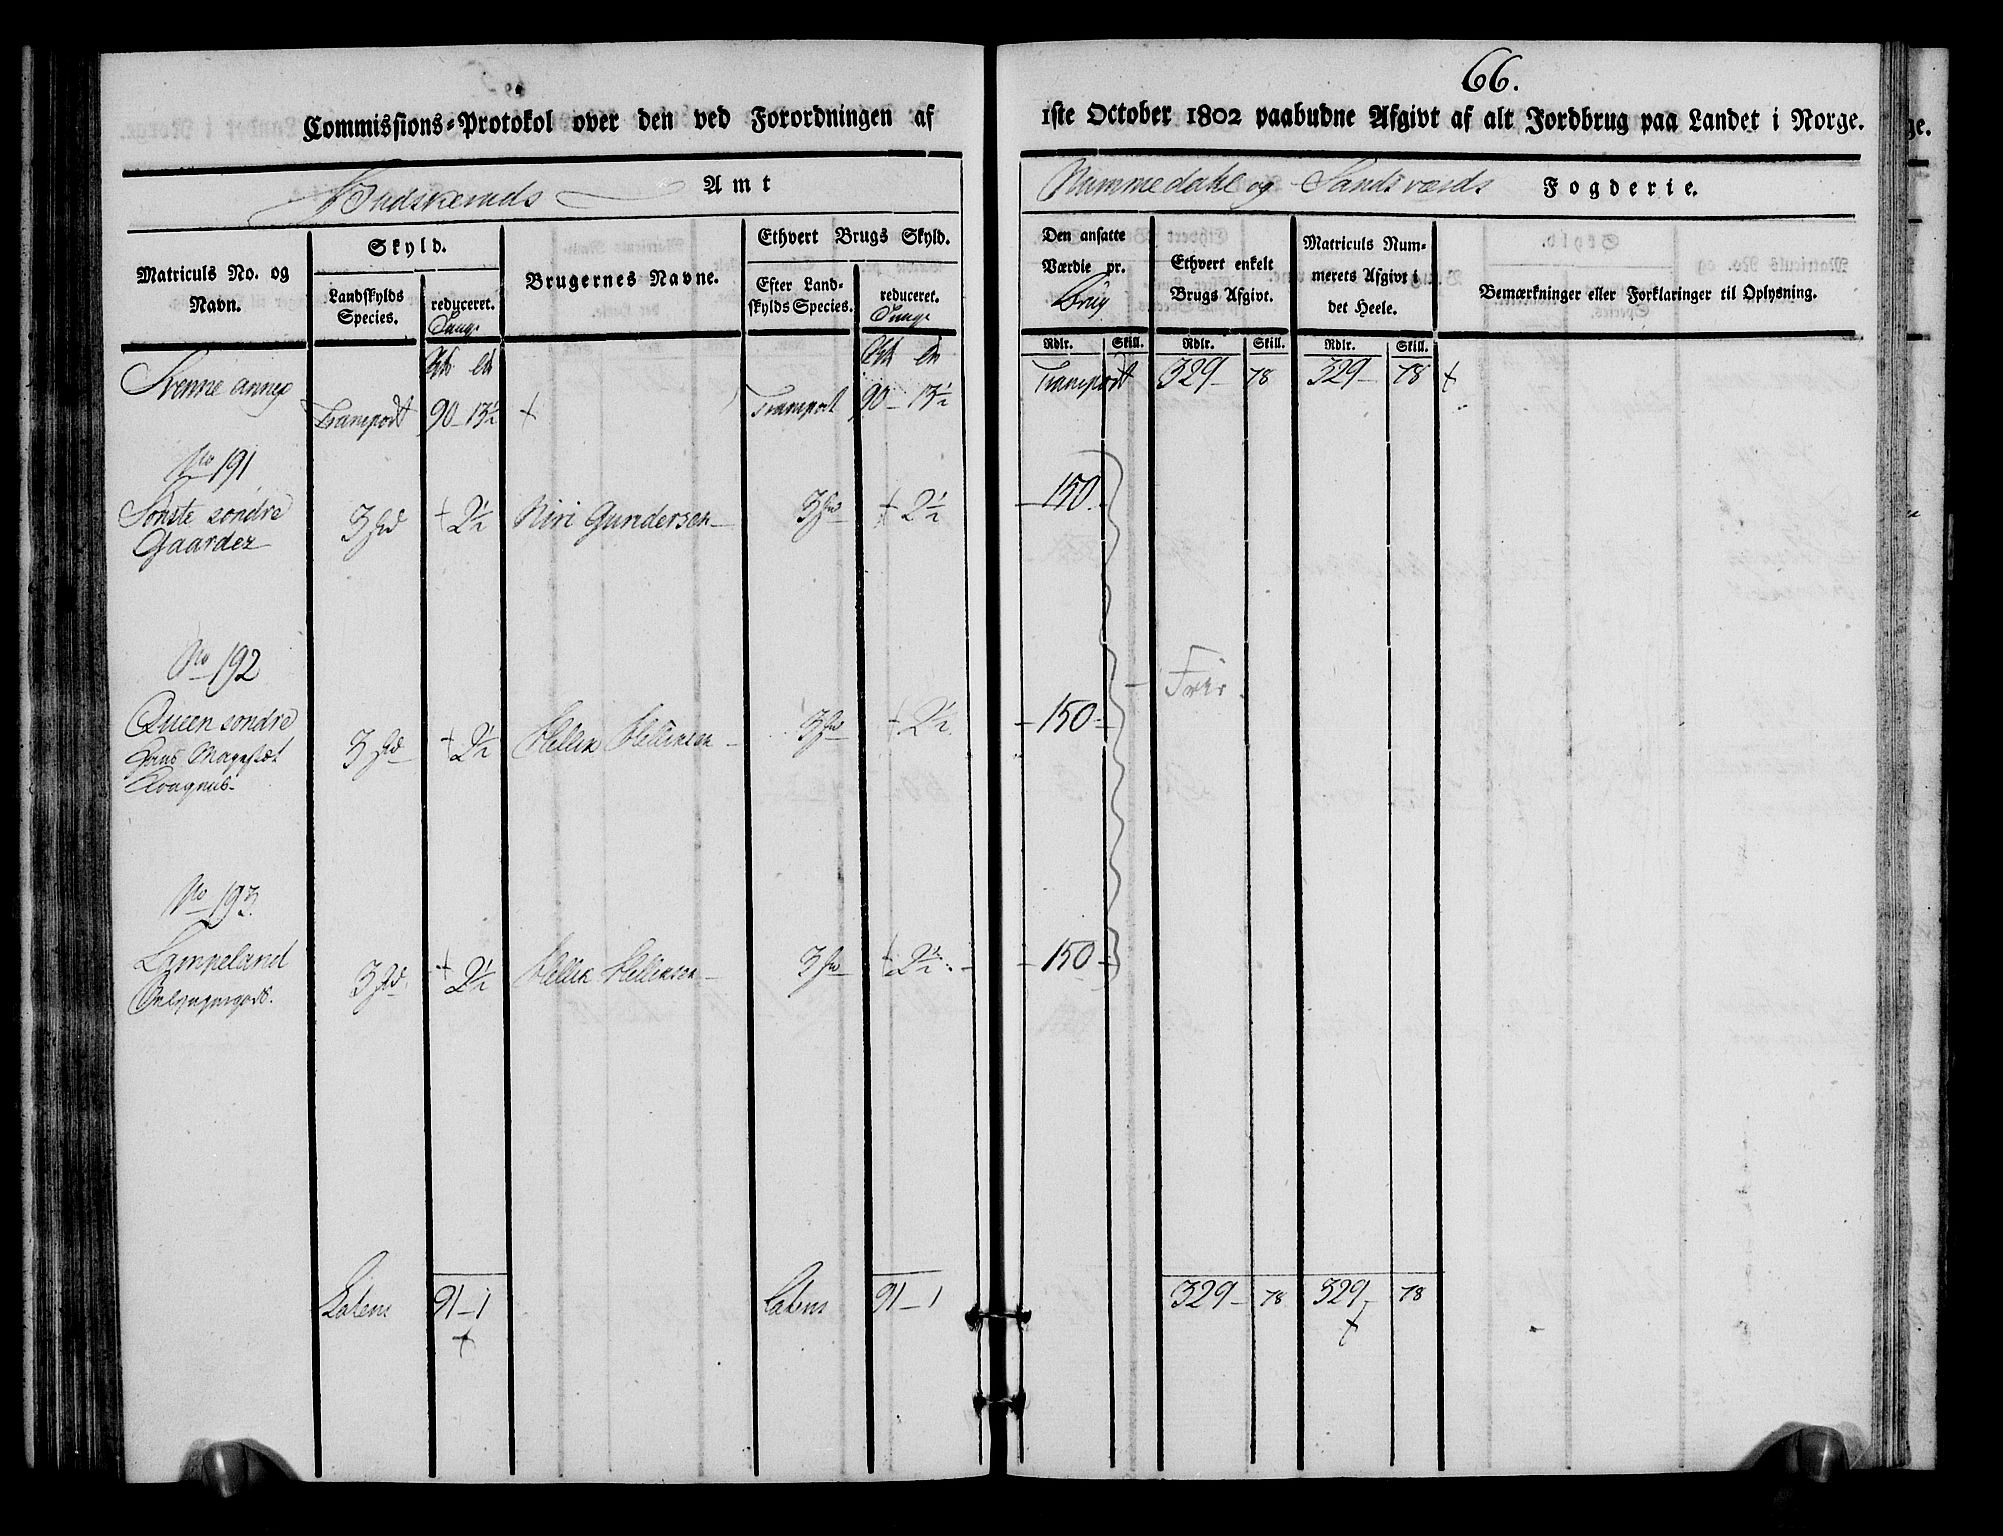 66.
Commissions-Protokol over den ved Forordningen af
1ste October 1802 paabudne Afgivt af alt Jordbrug paa Landet i Norge.
Budskeruds Amt
Nummedahl og Sandsværds Fogderie.
Matriculs No. og
Navn.
Skyld.
Landskylds
Species.
reduceret.
Tunge
Brugernes Navne.
Ethvert Brugs Skyld.
Efter Land-
skylds Species.
reduceret.
Tunge
Den ansatte
Værdie pr.
Brug
Ethvert enkelt
Brugs Afgivt.
Matriculs Num-
merets Afgivt i
det Heele.
Bemærkninger eller Forklaringer til Oplysning.
Rdlr. Skill. Rdlr. Skill. Rdlr. Skill.
Svenne annex
Transport 90 - 13½ + Transport 90 - 13½
Transport 329 - 78 329 - 78 +
No 191
Tonste sondre 3 + 2½ Kiri Gundersen 3 + 2½ - 150.
Gaarder
No 192
Frie.
Queen sondre 3 + 2½ Hellik Helliksen - 3 + 2½ - 150 -
No 193
Lampeland 3 + 2½ Hellik Helliksen - 3 + 2½ - 150 -
Latens 91 - 1 Latens 91 - 1 329 - 78 329 - 78
+ +